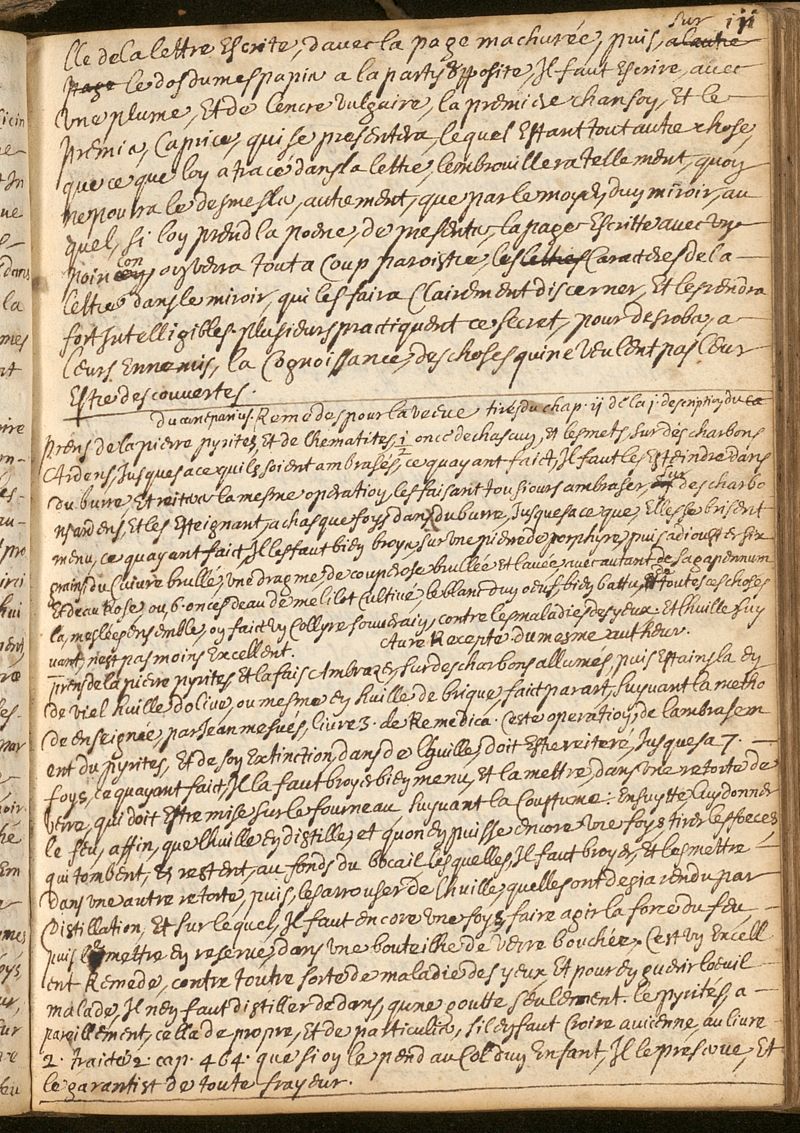 sur iij
lle de la lettre Escrite, d'avec la page machurée, puis, a lautre
page le dos du mes papia a la party opposite, Il faut Escrire, avec
Une plume, Et de l'encre vulgaire, la premiere chanson, Et le
premia, Caprice, qui se presentera, lequel Estant tout autre chose,
que ce que loy a tracé dans la lettre, lembrouillera tellement, quoy
ne poura le desmesla, autrement, que par le moyen, duy miroir, au
quel, si loy prend la poene, de presenta, la page Escritte avec Une
con
poin oy verra tout a Coup paroistre, les lettres Caracteres de la
lettre dans le miroir, qui les faira Clairement discerner, Et les rendra
fort Intelligibles. plusieurs practiquent ce secret, pour desroba, a
leurs Ennemis, la Cognoissance, des choses qui ne veulent pas leur
Estre descouvertes.
Remedes pour la veüe tirés du chap. ij de la j. description du
prens de la pierre pyrites, Et de lhematites, 1/2 once de chascuy, et les mets, sur des charbons
Ardens, Jusques a ce quils soient ambrasés, ce quayant faict, Il faut les Esteindre dans
du burre, Et reitera la mesme operatioy, les faisant tousiours ambraser, sur des charbo
ns ardens, Et les Esteignant, a chasque foys dans du burre, Jusques a ce que, Elles se brisent
menu, ce quayant faict, Il les faut biey broya, sur Une pierre de porphyre, puis adiouster six
grains, du Cuivre brullé, Une dragme, de couperose brullée et lavée, avec autant de sagapennum
Et deau Rose, ou 6. onces deau de melilot Cultivé, le blanc duy oeuf, biey battu, toutes ces choses
la, meslées ensemble, oy faict vy Collyre souveraiy, contre les maladies des yeux. Et lhuille suy
vant, nest pas moins Excellent. Autre Recepte du mesme autheur.
prens de la pierre pyrites Et la fais Ambrazer, sur des charbons allumés, puis Estains la ey
de viel huille dolive, ou mesme ey huille de brique, faict par art, suyvant la metho
de enseignée, par Jean mesués, livre 3. de Remedica. Ceste operatioy, de lambrasem
ent du pyrites, Et de soy Extinction, dans de lhuille, doit Estre reiteré, Jusques a 7.
foys, ce quayant faict, Il la faut broyer biey menu, Et la mettre, dans Une retorte de
verre, qui doit Estre mise sur le fourneau, suyvant la Coustume: Ensuytte, luy donner
le feu, affin, que lhuille ey distille, et quon ey puisse encore Une foys tirer les foeces
qui tombent, Et restent, au fonds du bocail lesquelles, Il faut broyer, Et les mettre
dans Une autre retorte, puis, les arrouser de lhuille, quelles ont desia rendu par
Distillation, Et sur lequel, Il faut encore Une foys, faire agir la force du feu,
puis le mettre ey reserve, dans Une bouteilhe de verre bouchée. Cest vy Excell
ent Remede, contre toutte sorte de maladie des yeux Et pour ey guerir loeuil
malade, Il ney faut distiller dedans, qune goutte seulement. le pyrites, a
pareillement, cella de propre, Et de particulia, sil ey faut Croire avicenne, au livre
2. traicté 2. cap. 464. que si oy le pend au Col duy Enfant, Il le preserve, Et
le garantist de toute frayeur.